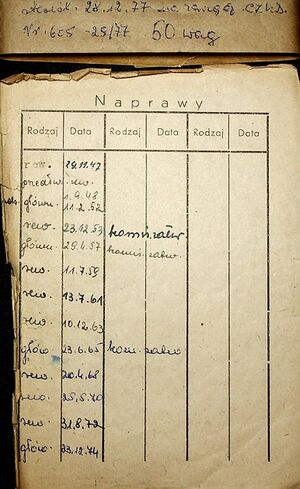 28.12.77 na
Nr. 605-29/77 50 wag
Naprawy
Rodzaj Data Rodzaj Data Rodzaj Data
rew. 29.11.47
rew.
1.9.48
główn. 11.2.52
rew. 23.12.53 komis. zatw.
główn. 29.4.57 komis. zatw.
rew. 11.7.59
rew. 13.7.61
rew. 10.12.63
główn. 23.6.65 kom. zatw.
rew. 20.4.68
rew. 25.5.70
rew. 31.8.72
główn. 23.12.74